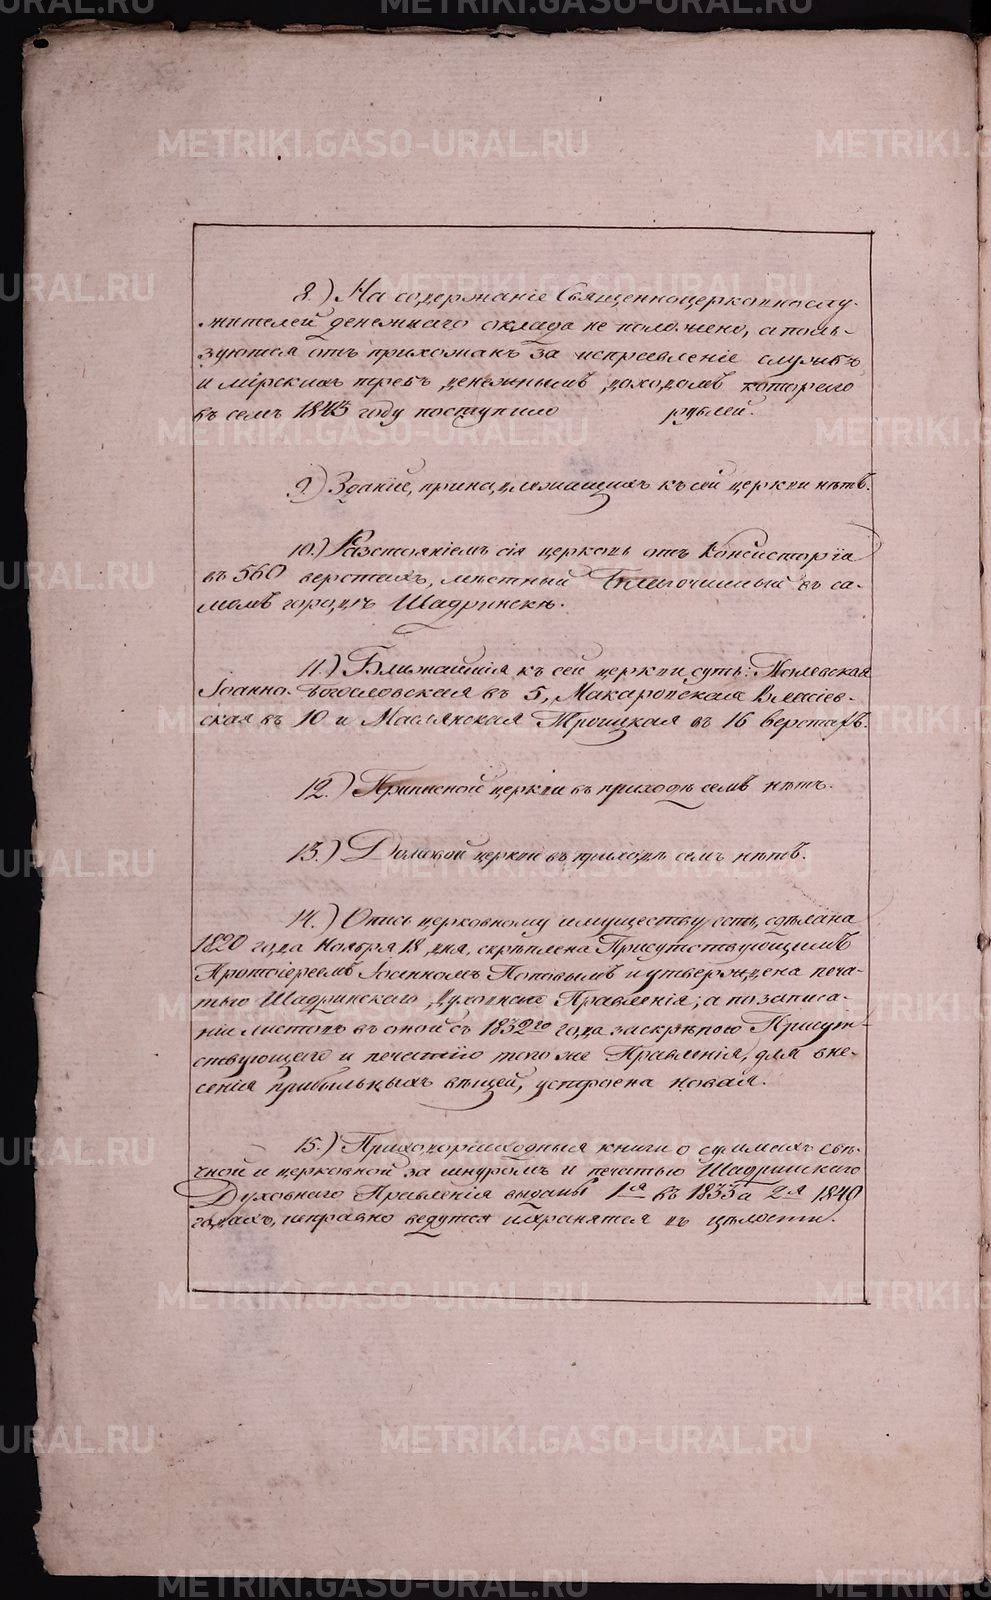 8.) На содержаніе Священноцерковнослу-
жителей денежнаго оклада не положено, а поль-
зуются отъ прихожанъ за исправленіе службъ
и мірскихъ требъ денежнымъ доходомъ котораго
въ семъ 1843 году поступило рублей.
9.) Зданій, принадлежащихъ къ сей церкви нѣтъ.
10.) Разстояніемъ сія церковь отъ Консисторіи
въ 560 верстахъ, мѣстный Благочинный въ са-
момъ городѣ Шадринскѣ.
11.) Ближайшія къ сей церкви суть: Полевская
Іоанно-Богословская въ 5, Макаровская Власіев-
ская въ 10 и Маслянская Троицкая въ 16 верстахъ.
12.) Приписной церкви въ приходѣ семъ нѣтъ.
13.) Домовой церкви въ приходѣ семъ нѣтъ.
14.) Опись церковному имуществу есть, сдѣлана
1820 года Ноября 18 дня, скрѣплена Присутствующимъ
Протоіереемъ Іоанномъ Поповымъ и утверждена печа-
тью Шадринскаго Духовнаго Правленія; а по записа-
ніи листовъ въ оной съ 1832го года за скрѣпою Присут-
ствующаго и печатію того же Правленія, для вне-
сенія прибыльныхъ вѣщей, устроена новая.
15.) Приходорасходныя книги о суммахъ свѣ-
чной и церковной за шнуромъ и печатью Шадринскаго
Духовнаго Правленія выданы 1я въ 1835 а 2я 1840
годахъ, исправно ведутся и хранятся въ цѣлости.
METRIKI.GASO-URAL.RU